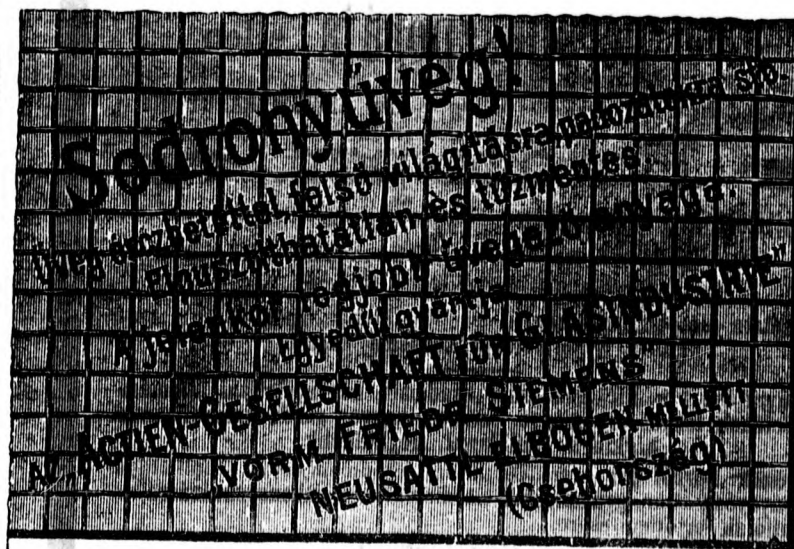 Sodronyüveg!
Üveg érczbetéttel, felső világításra, padozatokra stb.
Elpusztíthatatlan és tűzmentes.
A jelenkor legjobb üvegező anyaga.
Egyedül gyártja
AZ „ACTIEN-GESELLSCHAFT FÜR GLASINDUSTRIE"
„VORM. FRIEDR. SIEMENS"
NEUSATTL ELBOGEN MELLETT
(Csehország)